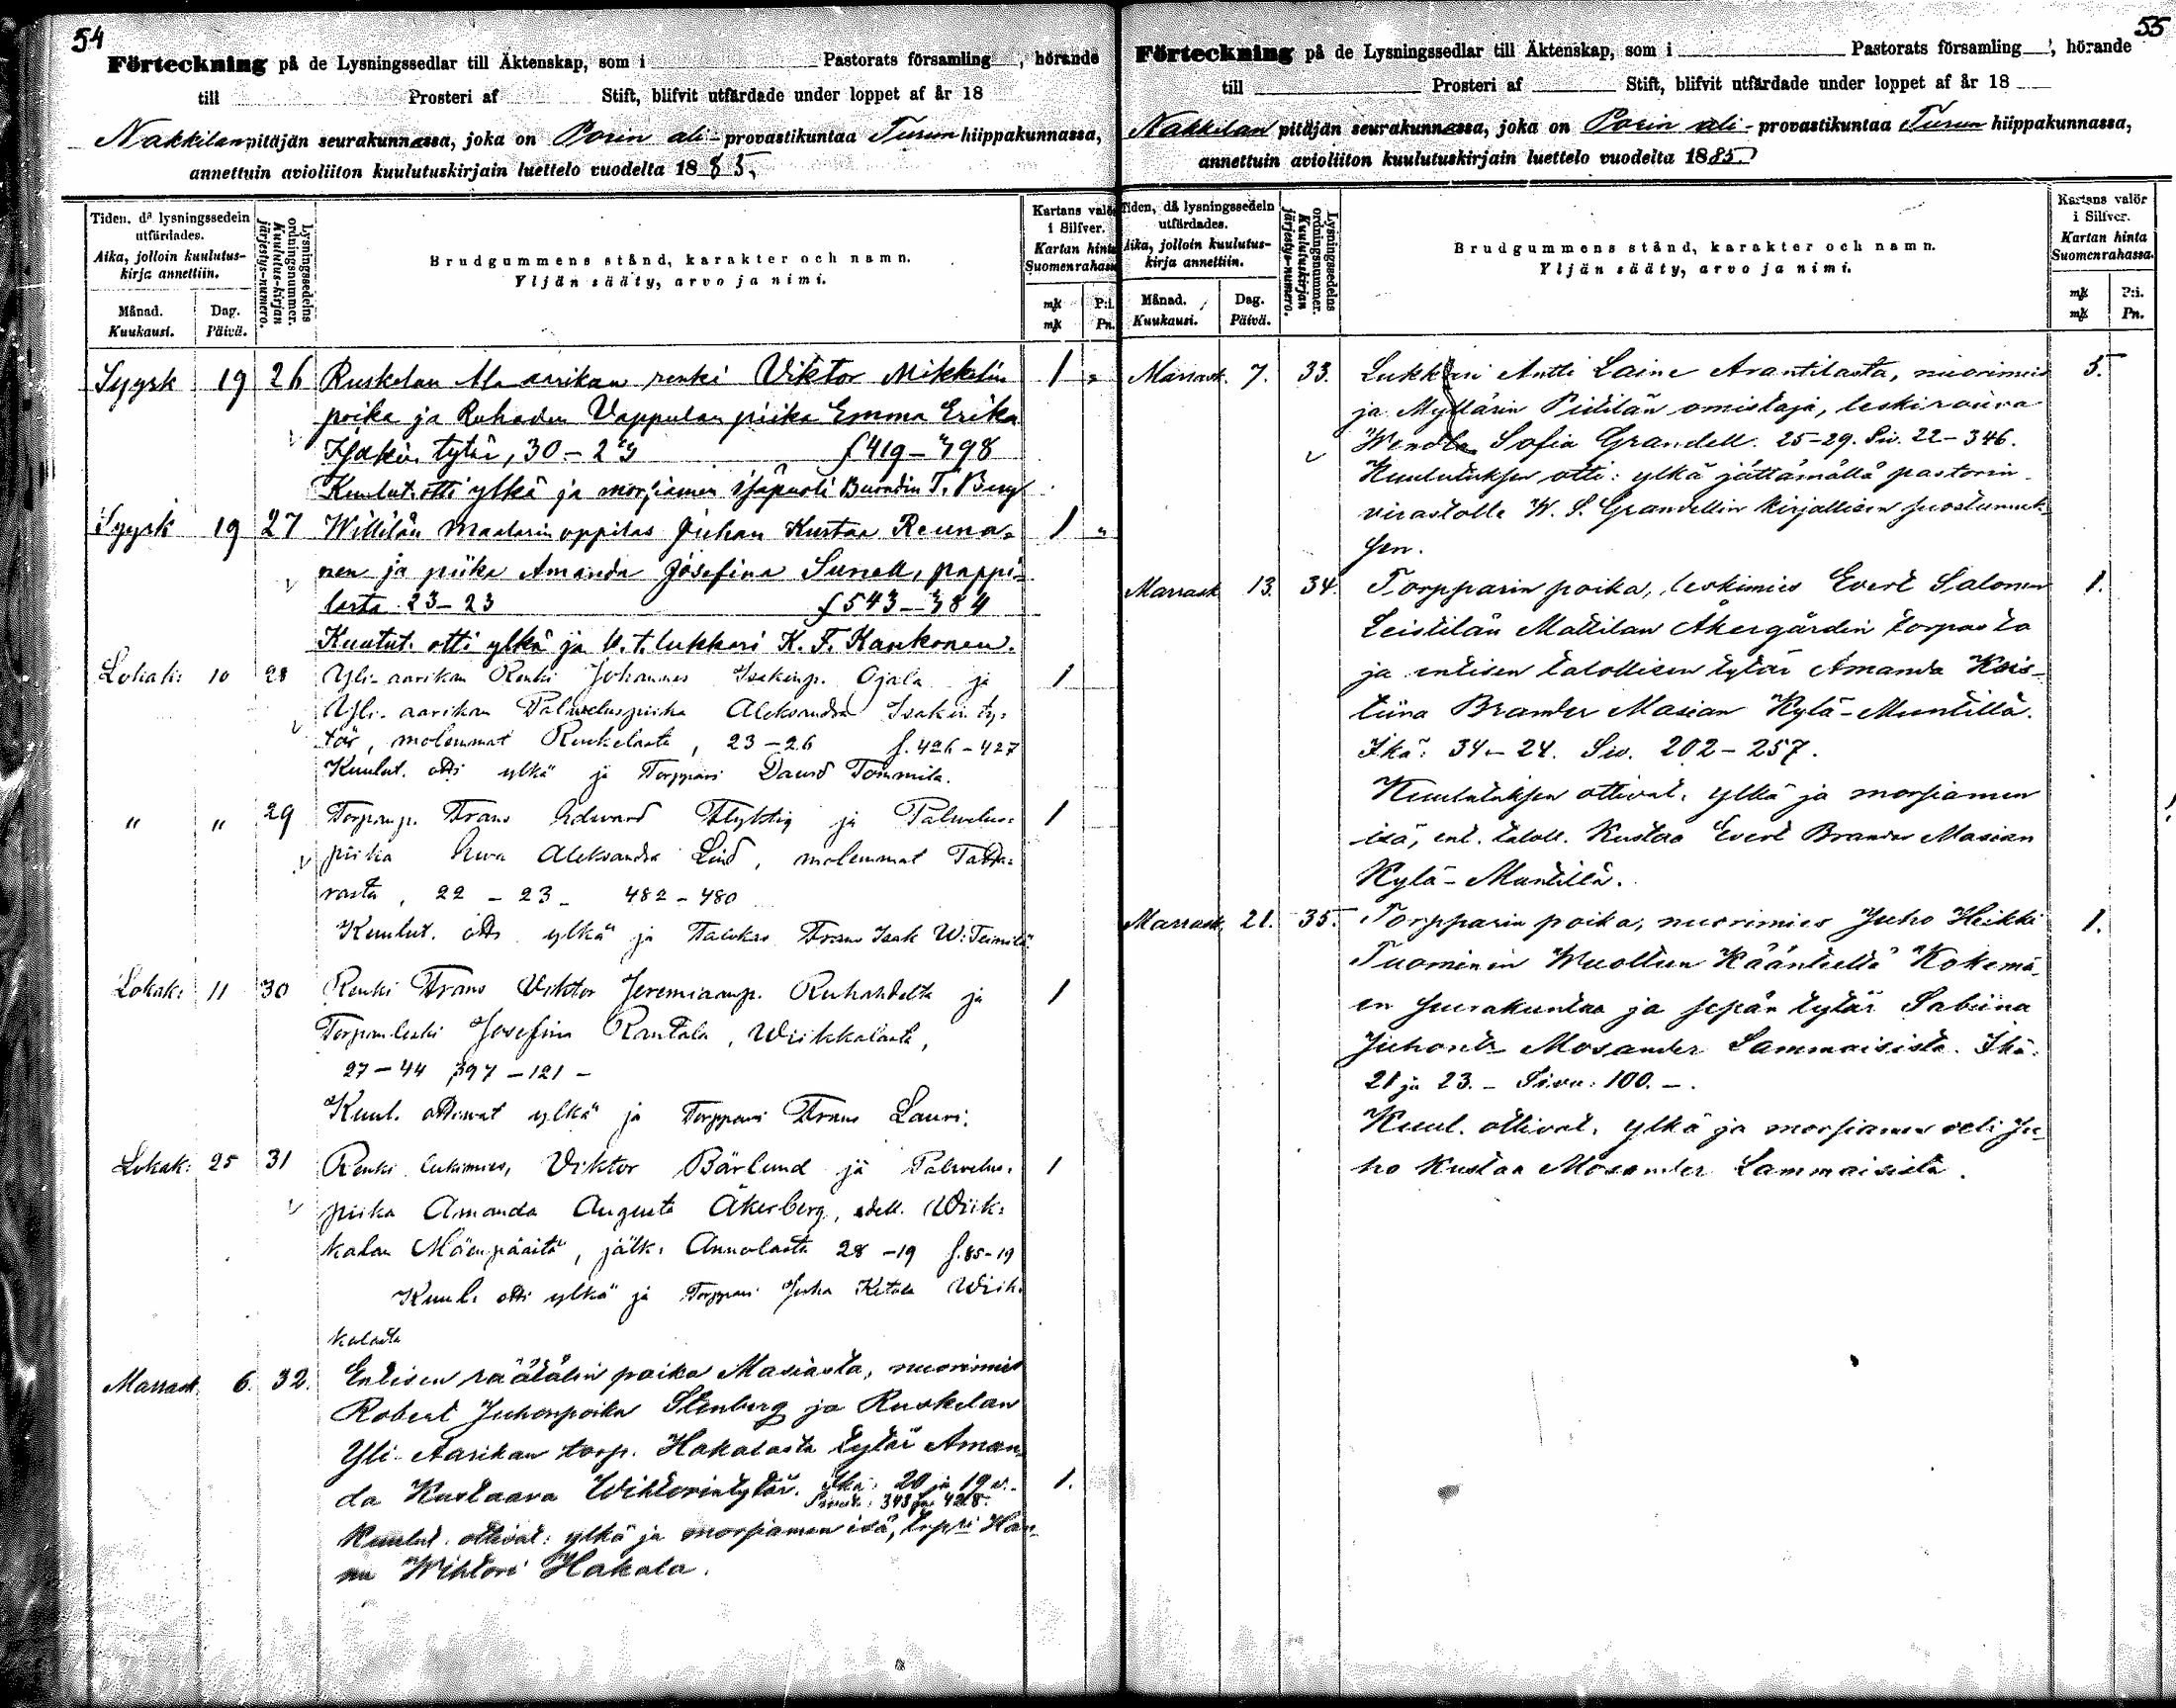 54
Förteckning på de Lysningssedlar till Äktenskap, som i Pastorats församling , hörande
till Prosteri af Stift, blifvit utfärdade under loppet af år 18
Nakkilan pitäjän seurakunnassa, joka on Porin ali-provastikuntaa Turun hiippakunnassa,
annettuin avioliiton kuulutuskirjain luettelo vuodelta 1885.
Tiden, då lysningssedeln utfärdades.
Aika, jolloin kuulutus-kirja annettiin.
Månad. Kuukausi.
Dag. Päivä.
Lysningssedelns ordningsnummer.
Kuulutus-kirjan järjestys-numero.
Brudgummens stånd, karakter och namn.
Yljän sääty, arvo ja nimi.
Kartans valör i Silfver.
Kartan hinta Suomenrahassa
mk P:i.
mk Pn.
Syysk 19 26 Ruskelan Ala aarikan renki Viktor Mikkelin 1 "
poika ja Ruhaden Vappulan piika Emma Erika
Isakin tytär, 30-23 f 419-398
Kuulut. otti ylkä ja morsiamen isäpuoli T. Berg
Syysk 19 27 Willilän Maalarin oppilas Juhan Kustaa Reuna- 1 "
nen ja piika Amanda Josefina Sunell, pappi-
lasta 23-23 f 543-384
Kuulut. otti ylkä ja V. t. lukkari K. F. Kankonen.
Lokak: 10 28 Yli-aarikan Renki Johannes Isakinp. Ojala ja 1
Yli-aarikan Palveluspiika Aleksandra Isakin ty-
tär, molemmat Ruskelasta, 23-26 f. 426-427
Kuulut. otti ylkä ja Torppari David Tommila.
" " 29 Torpanp. Frans Edward Flyktig ja Palvelus- 1
piika Ewa Aleksandra Lind, molemmat Tatta-
rasta, 22-23- 482-480
Kuulut. otti ylkä ja Talokas Frans Isak W: Teimilä
Lokak: 11 30 Renki Frans Viktor Jeremiaanp. Ruhahdelta ja 1
Torpanleski Josefina Rantala, Wiikkalasta,
27-44 397-121-
Kuul. ottiwat ylkä ja Torppari Frans Lauri.
Lokak: 25 31 Renki leskimies, Viktor Bärlund ja Palvelus- 1
piika Amanda Augusta Åkerberg, edell. Wiik-
kalan Mäenpäältä, jälk. Annolasta 28-19 f. 85-19
Kuul. otti ylkä ja Torppari Juha Ketala Wiik-
kalasta
Marrask. 6. 32. Entisen räätälin poika Masiasta, nuorimies
Robert Juhonpoika Stenberg ja Ruskelan
Yli-Aarikan torp. Hakalasta tytär Aman-
da Kustaava Wihtorintytär. Ikä: 20 ja 19 v. 1.
Sivut: 343 ja 428.
Kuulut. ottivat: ylkä ja morsiamen isä, torpri Han-
nu Wihtori Hakala.
55
Förteckning på de Lysningssedlar till Äktenskap, som i Pastorats församling , hörande
till Prosteri af Stift, blifvit utfärdade under loppet af år 18
Nakkilan pitäjän seurakunnassa, joka on Porin ali-provastikuntaa Turun hiippakunnassa,
annettuin avioliiton kuulutuskirjain luettelo vuodelta 1885
Tiden, då lysningssedeln utfärdades.
Aika, jolloin kuulutus-kirja annettiin.
Månad. Kuukausi.
Dag. Päivä.
Lysningssedelns ordningsnummer.
Kuulutuskirjan järjestys-numero.
Brudgummens stånd, karakter och namn.
Yljän sääty, arvo ja nimi.
Kartans valör i Silfver.
Kartan hinta Suomenrahassa.
mk P:i.
mk Pn.
Marrask. 7. 33. Lukkari Antti Laine Arantilasta, nuorimies 5.
ja Myllärin Pietilän omistaja, leskirouva
Wendla Sofia Grandell. 25-29. Siv. 22-346.
Kuulutuksen otti: ylkä jättämällä pastorin-
virastolle W. S. Grandellin kirjallisen suostumuk-
sen.
Marrask 13. 34. Torpparin poika, leskimies Evert Salonen 1.
Leistilän Mattilan Åkergårdin torpasta
ja entisen talollisen tytär Amanda Kris-
tiina Brander Masian Kylä-Muntilla.
Ikä: 34-24. Siv. 202-257.
Kuulutuksen ottivat, ylkä ja morsiamen
isä, ent. taloll. Kustaa Evert Brander Masian
Kylä-Muntilla.
Marrask. 21. 35. Torpparin poika, nuorimies Juho Heikki 1.
Tuominen Wuolteen Kääntiältä Kokemä-
en seurakuntaa ja sepän tytär Sabiina
Juhont. Mosander Lammaisista. Ikä:
21 ja 23.- Sivu: 100.-.
Kuul. ottivat, ylkä ja morsiamen veli Ju-
ho Kustaa Mosander Lammaisista.